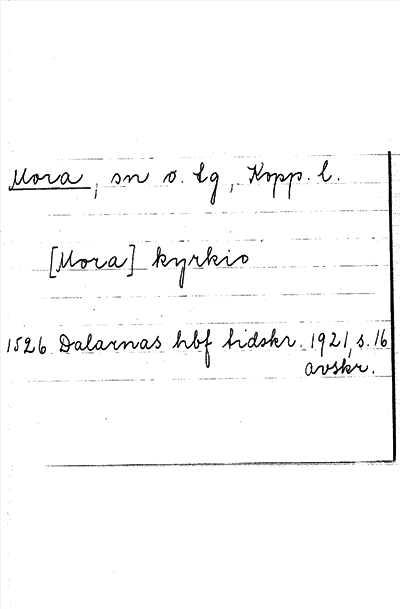 Mora, sn o. tg, Kopp. l.
[Mora] kyrkio
1526 Dalarnas hbf tidskr. 1921, s. 16
avskr.